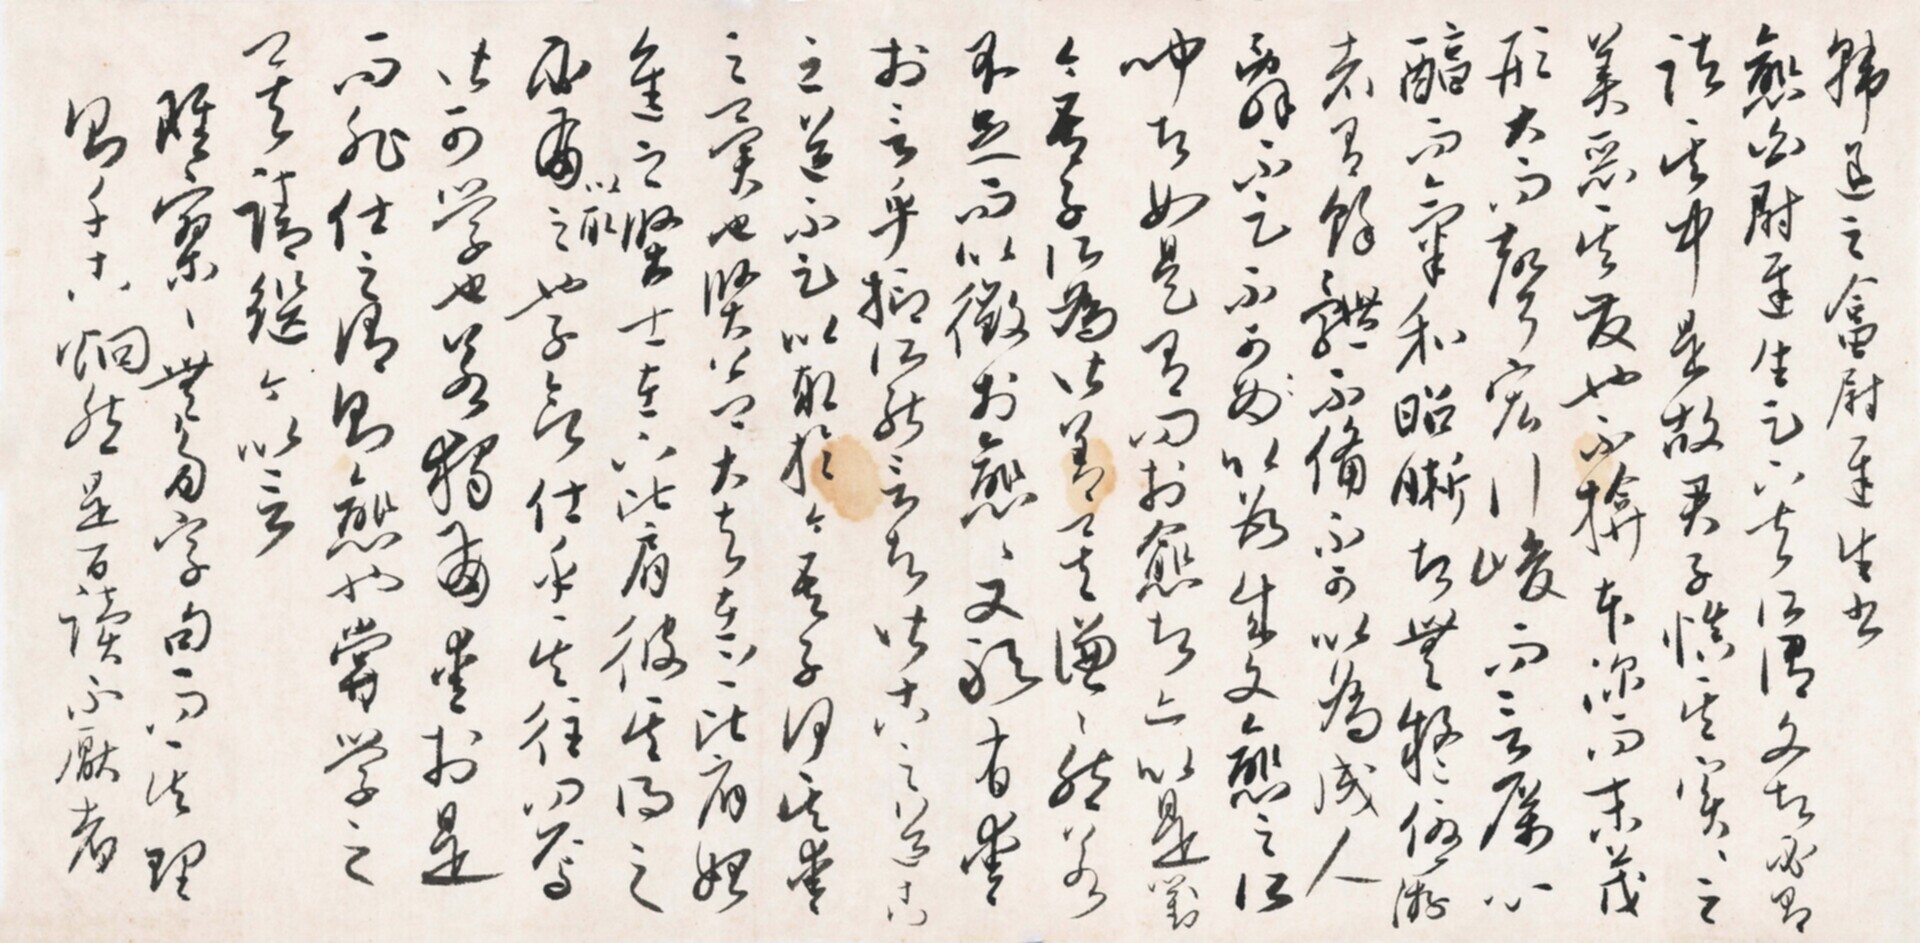 韓退之答尉遲生書
愈白尉遲生足下夫所謂文者必有
諸其中是故君子慎其實々之
美惡其發也不揜本深而末茂
形大而聲宏行峻而言厲心
醇而氣和昭晰者無疑優游
者有餘體不備不可以為成人
辭不足不可以為成文愈之所
聞者如是有問於愈者亦以是對
今吾子所為皆善矣謙々然若
不足而以徵於愈々又敢有愛
於言乎抑所能言者皆古之道古
之道不足以取於今吾子何其愛
之異也賢公卿大夫在上比肩始
進之賢士在下比肩彼其得之
必有以取之也子欲仕乎其往問焉
皆可學也若獨有愛於是
而非仕之謂則愈也嘗學之
矣請繼今以言
雖寥々無多字句而其理
則千古炯然是百讀不厭者